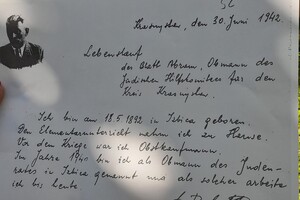 Krasnystaw, den 30. Juni 1942.
Lebenslauf
des Blatt Abram, Obmann des
Jüdischen Hilfskomitees für den
Kreis Krasnystaw.
Ich bin am 18.5.1892 in Izbica geboren.
Den Elementarunterricht nahm ich zu Hause.
Vor dem Kriege war ich Obstkaufmann.
Im Jahre 1940 bin ich als Obmann des Juden-
rates in Izbica genannt und als solcher arbeite
ich bis heute.